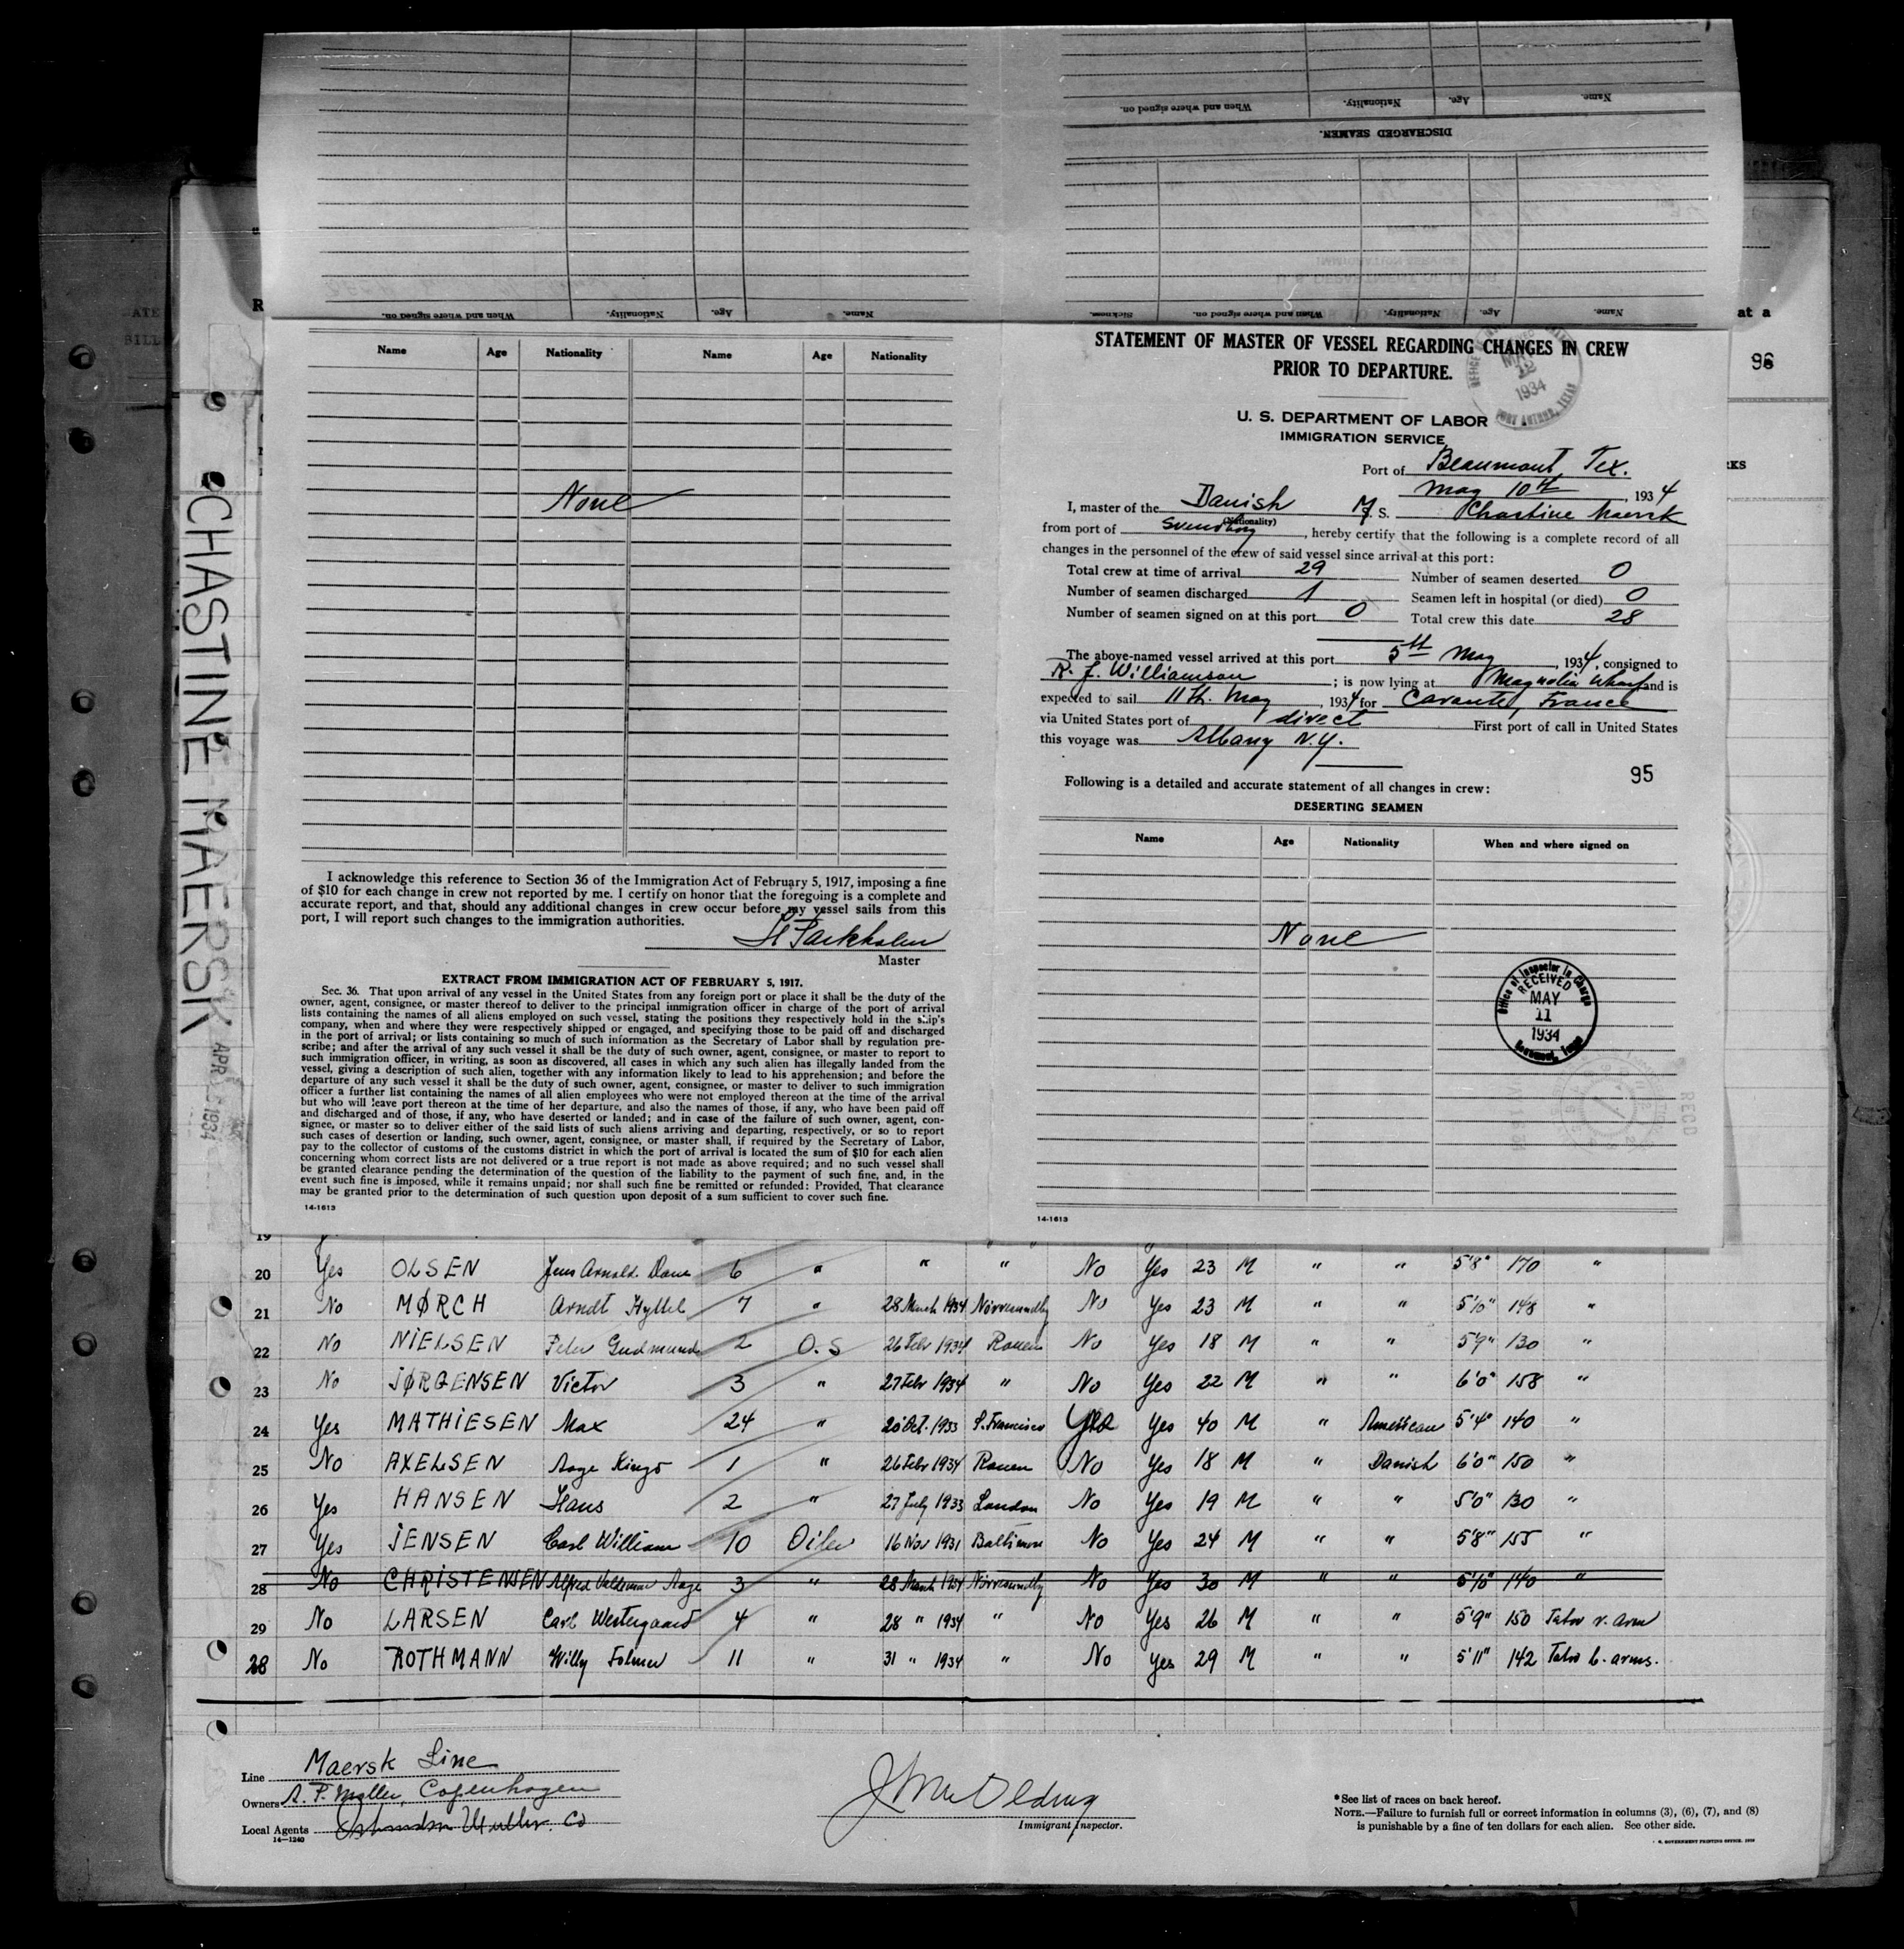 When and where signed on. Nationality. Age. Name.
DISCHARGED SEAMEN.
When and where signed on. Nationality. Age. Name.
Sickness. When and where signed on. Nationality. Age. Name.
ATE
BILL
R
at a
96
RKS
CHASTINE MAERSK
APR 1934
Name Age Nationality Name Age Nationality
None
I acknowledge this reference to Section 36 of the Immigration Act of February 5, 1917, imposing a fine
of $10 for each change in crew not reported by me. I certify on honor that the foregoing is a complete and
accurate report, and that, should any additional changes in crew occur before my vessel sails from this
port, I will report such changes to the immigration authorities.
Master
EXTRACT FROM IMMIGRATION ACT OF FEBRUARY 5, 1917.
Sec. 36. That upon arrival of any vessel in the United States from any foreign port or place it shall be the duty of the
owner, agent, consignee, or master thereof to deliver to the principal immigration officer in charge of the port of arrival
lists containing the names of all aliens employed on such vessel, stating the positions they respectively hold in the ship's
company, when and where they were respectively shipped or engaged, and specifying those to be paid off and discharged
in the port of arrival; or lists containing so much of such information as the Secretary of Labor shall by regulation pre-
scribe; and after the arrival of any such vessel it shall be the duty of such owner, agent, consignee, or master to report to
such immigration officer, in writing, as soon as discovered, all cases in which any such alien has illegally landed from the
vessel, giving a description of such alien, together with any information likely to lead to his apprehension; and before the
departure of any such vessel it shall be the duty of such owner, agent, consignee, or master to deliver to such immigration
officer a further list containing the names of all alien employees who were not employed thereon at the time of the arrival
but who will leave port thereon at the time of her departure, and also the names of those, if any, who have been paid off
and discharged and of those, if any, who have deserted or landed; and in case of the failure of such owner, agent, con-
signee, or master so to deliver either of the said lists of such aliens arriving and departing, respectively, or so to report
such cases of desertion or landing, such owner, agent, consignee, or master shall, if required by the Secretary of Labor,
pay to the collector of customs of the customs district in which the port of arrival is located the sum of $10 for each alien
concerning whom correct lists are not delivered or a true report is not made as above required; and no such vessel shall
be granted clearance pending the determination of the question of the liability to the payment of such fine, and, in the
event such fine is imposed, while it remains unpaid; nor shall such fine be remitted or refunded: Provided, That clearance
may be granted prior to the determination of such question upon deposit of a sum sufficient to cover such fine.
14-1613
STATEMENT OF MASTER OF VESSEL REGARDING CHANGES IN CREW
PRIOR TO DEPARTURE.
MAY 12 1934 PORT ARTHUR, TEXAS
U. S. DEPARTMENT OF LABOR
IMMIGRATION SERVICE
Port of Beaumont, Tex.
May 10th, 1934
I, master of the Danish M. S. Chastine Maersk
(Nationality)
from port of Svendborg, hereby certify that the following is a complete record of all
changes in the personnel of the crew of said vessel since arrival at this port:
Total crew at time of arrival 29 Number of seamen deserted 0
Number of seamen discharged 1 Seamen left in hospital (or died) 0
Number of seamen signed on at this port 0 Total crew this date 28
The above-named vessel arrived at this port 5th May, 1934, consigned to
R. J. Williamson; is now lying at Magnolia Wharf and is
expected to sail 11th. May, 1934 for France
via United States port of direct First port of call in United States
this voyage was Albany N.Y.
95
Following is a detailed and accurate statement of all changes in crew:
DESERTING SEAMEN
Name Age Nationality When and where signed on
None
Office of Inspector in Charge RECEIVED MAY 11 1934 Beaumont, Texas
RECD
14-1613
19
20 Yes OLSEN Jens Arnold 6 " " " No Yes 23 M " " 5'8" 170 "
21 No MØRCH Arndt Hyttel 7 " 28 March 1934 Nörresundby No Yes 23 M " " 5'10" 148 "
22 No NIELSEN Peter Gudmund 2 O.S 26 Febr 1934 Rouen No Yes 18 M " " 5'9" 130 "
23 No JØRGENSEN Victor 3 " 27 Febr 1934 " No Yes 22 M " " 6'0" 158 "
24 Yes MATHIESEN Max 24 " 20 Oct. 1933 S. Francisco Yes Yes 40 M " American 5'4" 140 "
25 No AXELSEN Aage Kingo 1 " 26 Febr 1934 Rouen No Yes 18 M " Danish 6'0" 150 "
26 Yes HANSEN Hans 2 " 27 July 1933 London No Yes 19 M " " 5'0" 130 "
27 Yes JENSEN Carl William 10 Oiler 16 Nov 1931 Baltimore No Yes 24 M " " 5'8" 155 "
28 No CHRISTENSEN Alfred Valdemar Aage 3 " 28 March 1934 Nörresundby No Yes 30 M " " 5'10" 140 "
29 No LARSEN Carl Westergaard 4 " 28 " 1934 " No Yes 26 M " " 5'9" 150 Tatov r. arm
28 No ROTHMANN Willy Folmer 11 " 31 " 1934 " No Yes 29 M " " 5'11" 142 Tatov b. arms.
Line Maersk Line
Owners A. P. Moller, Copenhagen
Local Agents
14-1240
Immigrant Inspector.
*See list of races on back hereof.
NOTE.—Failure to furnish full or correct information in columns (3), (6), (7), and (8)
is punishable by a fine of ten dollars for each alien. See other side.